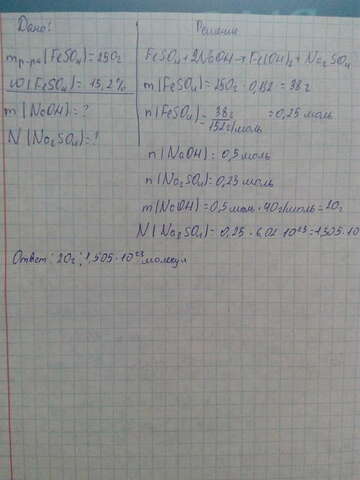 Дано:
m р-ра (FeSO₄) = 250г
ω (FeSO₄) = 15,2%
m (NaOH) = ?
N (Na₂SO₄) = ?
Решение
FeSO₄ + 2NaOH → Fe(OH)₂ + Na₂SO₄
m (FeSO₄) = 250г · 0,152 = 38г
n (FeSO₄) = 38г / 152г/моль = 0,25 моль
n (NaOH) = 0,5 моль
n (Na₂SO₄) = 0,25 моль
m (NaOH) = 0,5 моль · 40г/моль = 20г
N (Na₂SO₄) = 0,25 · 6,02 · 10²³ = 1,505 · 10
Ответ: 20г; 1,505 · 10²³ молекул